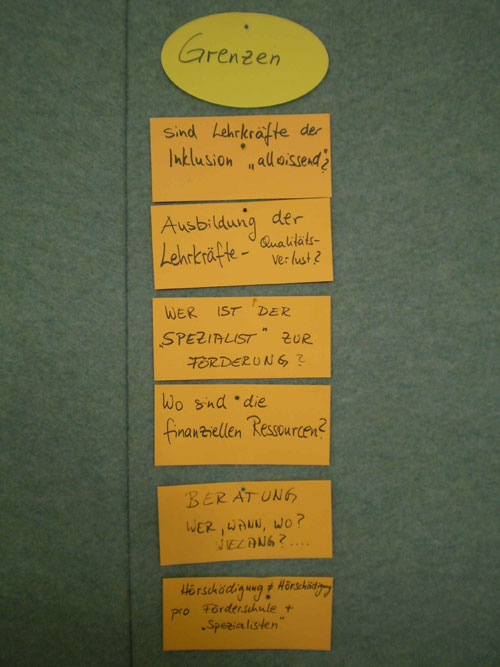 Grenzen
sind Lehrkräfte der
Inklusion „allwissend"?
Ausbildung der
Lehrkräfte - Qualitäts-
verlust?
WER IST DER
„SPEZIALIST" ZUR
FÖRDERUNG?
Wo sind die
finanziellen Ressourcen?
BERATUNG
WER, WANN, WO?
WIELANG?....
Hörschädigung ≠ Hörschädigung
pro Förderschule +
„Spezialisten"